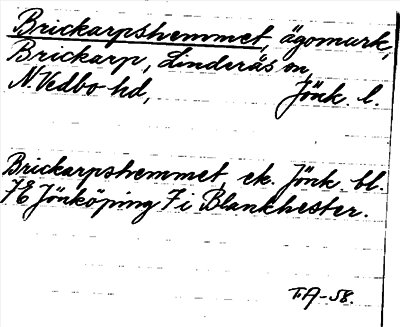 Brickarpshemmet, ägomark,
Brickarp, Linderås sn,
N. Vedbo hd, Jönk. l.
Brickarpshemmet, ek. Jönk. bl.
7E Jönköping 7 i Blankhester.
T.A-58.